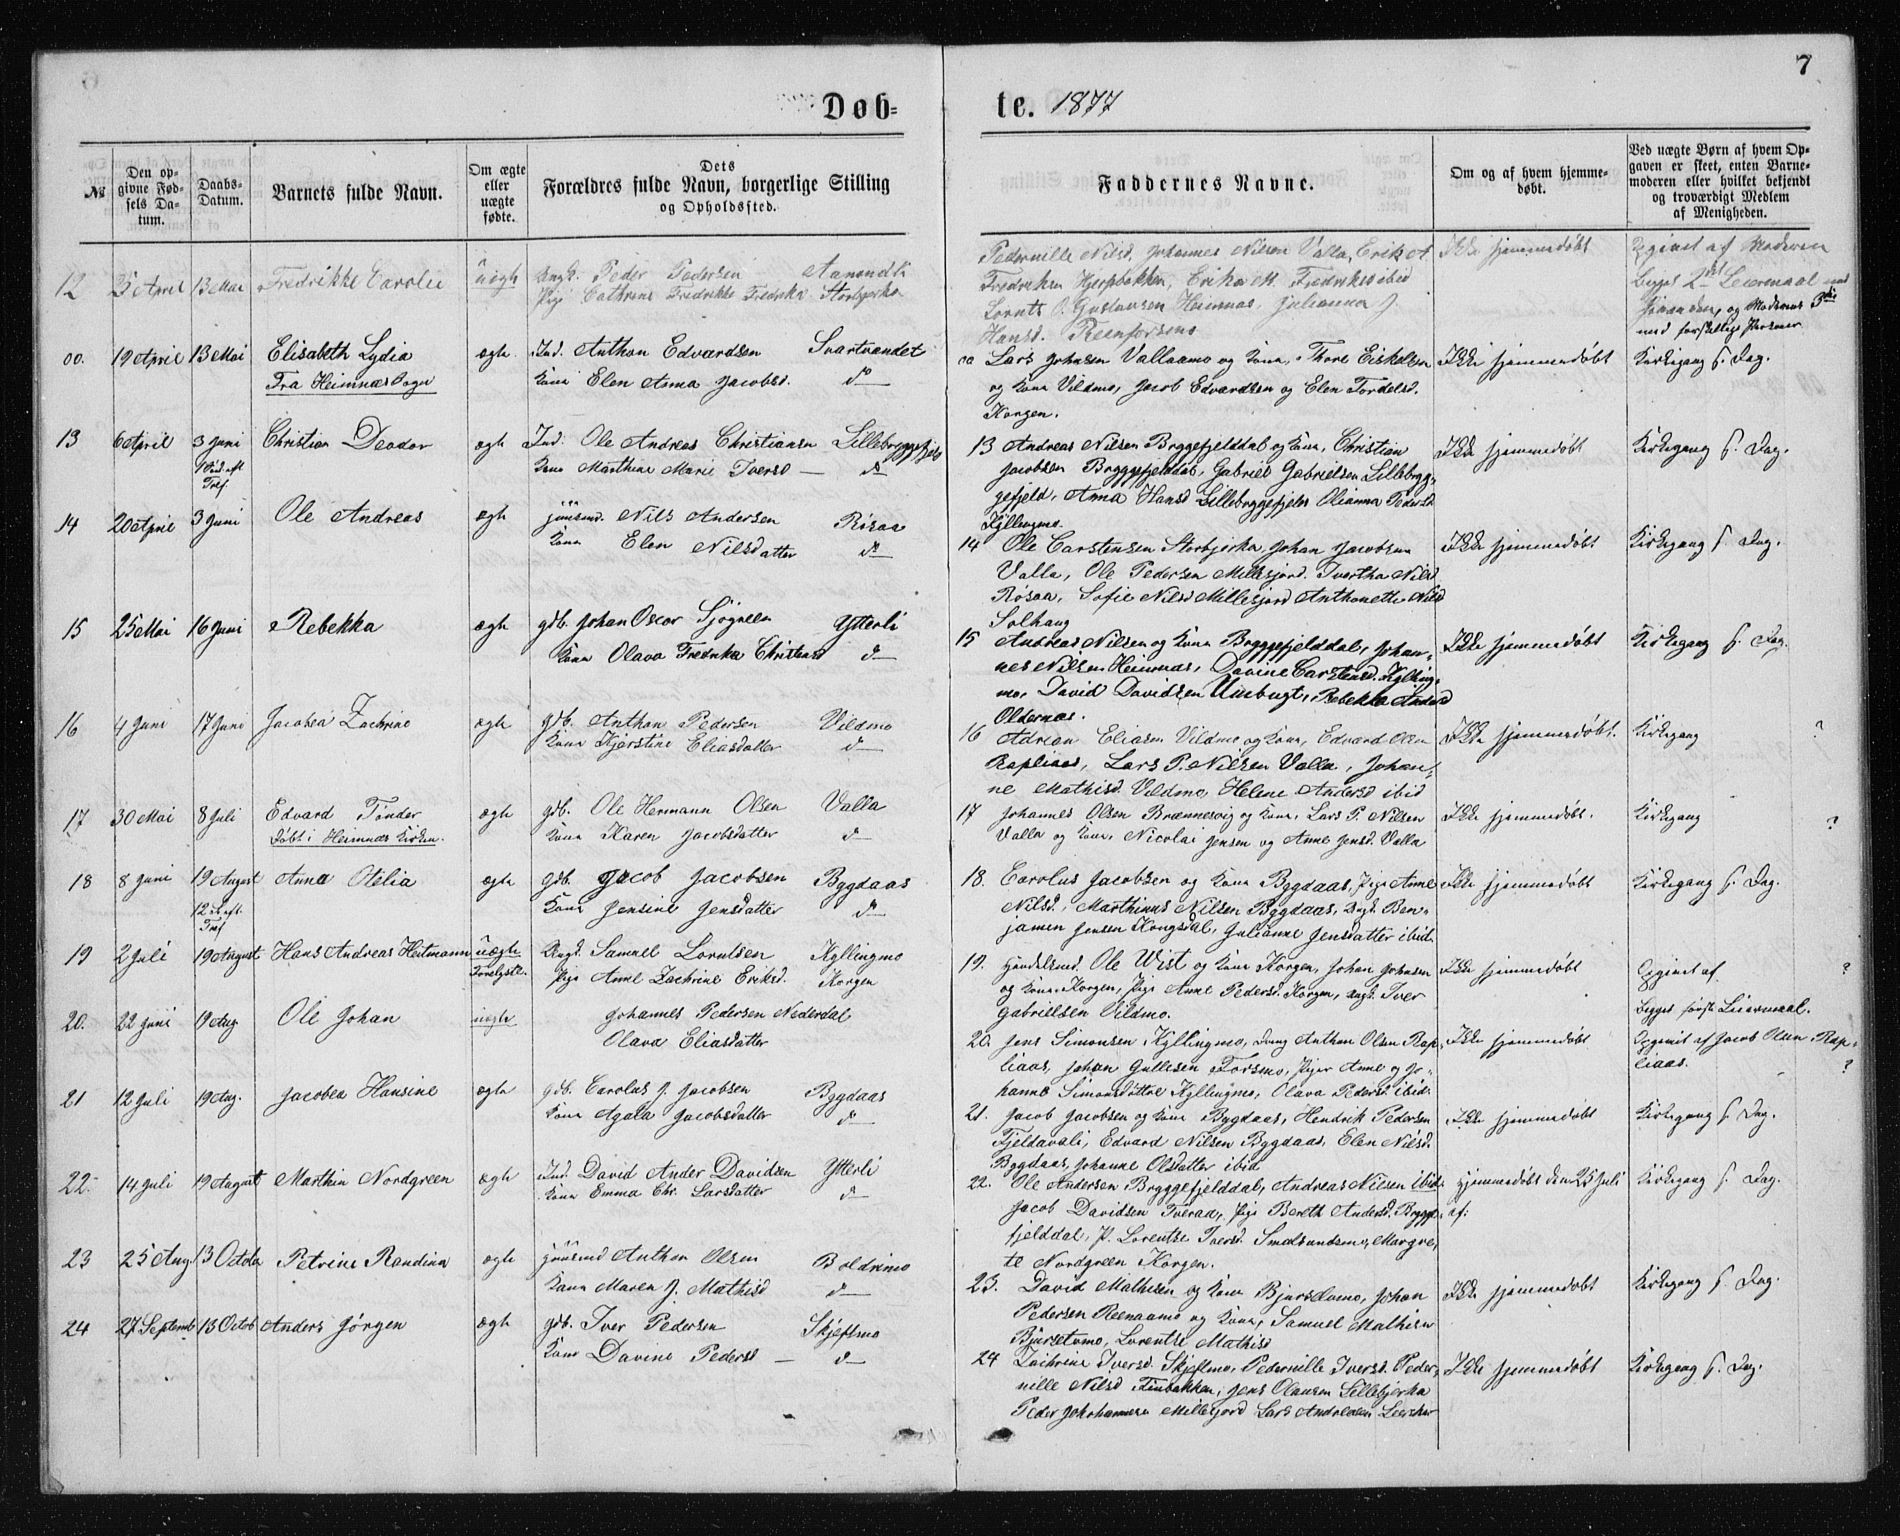 7
Døb=
te. 1877
№
Den op-
givne Fød-
sels Da-
tum.
Daabs-
Datum.
Barnets fulde Navn.
Om ægte
eller
uægte
fødte.
Dets
Forældres fulde Navn, borgerlige Stilling
og Opholdssted.
Faddernes Navne.
Om og af hvem hjemme-
døbt.
Ved uægte Børn af hvem Op-
gaven er skeet, enten Barne-
moderen eller hvilket bekjendt
og troværdigt Medlem
af Menigheden.
12 25 April 13 Mai Fredrikke Carolie uægte Ungk. Peder Pedersen
Pige Cathrine Fredrikke Fredriks Storbjerka
Pedernille Nilsd. Johannes Nilsen Valla, Erik A
Fredriksen Hjerpbakken, Erika M. Fredriksd ibid
Lornts O. Gustavsen Heimnæs, Julianna J.
Hansd. Reenforsmo
Ikke hjemmedøbt
Opgivet af Moderen
Begges 2det Leiermaal
og Moderens 3die
med forskjellige Personer
00. 19 April 13 Mai Elisabeth Lydia ægte Ind. Anthon Edvardsen Svartvandet
Fra Heimnæs Sogn Kone Elen Anna Jacobsd. do
00 Lars Johnsen Vallaamo og Kone, Thore Eiskelsen
og Kone Vildmo, Jacob Edvardsen og Elen Tordelsd.
Korgen.
Ikke hjemmedøbt Kirkegang s. Dag.
13 6 April 3 Juni Christian Deodor ægte Ind. Ole Andreas Christiansen Lillebryggefjeld
Tref. Kone Marthine Marie Iversd — do
13 Andreas Nilsen Bryggefjelddal og Kone, Christian
Jacobsen Bryggefjelddal, Gabriel Gabrielsen Lillebryg-
gefjeld, Anna Hansd Lillebryggefjeld, Olianna Pedersd
Kyllingmo.
Ikke hjemmedøbt Kirkegang s. Dag.
14 20 April 3 Juni Ole Andreas ægte Huusmd. Nils Andersen Røsaa
Kone Elen Nilsdatter do
14 Ole Carstensen Storbjerka, Johan Jacobsen
Valla, Ole Pedersen Millesjord. Ivertha Nilsd
Røsaa, Sofie Nilsd Millesjord Anthonette Nilsd
Solhaug
Ikke hjemmedøbt Kirkegang s. Dag.
15 25 Mai 16 Juni Rebekka ægte gdb. Johan Oscar Sjøgreen Ytterli
Kone Olava Fredrika Christensd do
15 Andreas Nilsen og Kone Bryggefjelddal, Johan-
nes Nilsen Heimnæs, Davine Carstensd. Kylling-
mo, David Davidsen Umbugt, Rebekka Andersd
Oldernæs.
Ikke hjemmedøbt Kirkegang s. Dag.
16 4 Juni 17 Juni Jacobea Zachrine ægte gdb. Anthon Pedersen Vildmo
Kone Kjerstine Eliasdatter do
16 Adrian Eliasen Vildmo og Kone, Edvard Olsen
Rapliaas, Lars P. Nilsen Valla, Johan-
ne Mathisd. Vildmo, Helene Andersd ibid
Ikke hjemmedøbt. Kirkegang ?
17 30 Mai 8 Juli Edvard Tinder ægte gdb. Ole Hermann Olsen Valla
Døbt i Heimnæs Kirken. Kone Karen Jacobsdatter do
17 Johannes Olsen Brænnesvig og Kone, Lars P. Nilsen
Valla og Kone, Nicolai Jensen og Anne Jensd. Valla
Ikke hjemmedøbt. Kirkegang ?
18 8 Juni 19 August Anna Otelia ægte gdb. Jacob Jacobsen Bygdaas
12 S. eft.
Tref Kone Jensine Jensdatter do
18. Carolus Jacobsen og Kone Bygdaas, Pige Anne
Nilsd. Marthinus Nilsen Bygdaas, Ungk. Ben-
jamin Jensen Kongsdal, Julianne Jensdatter ibid.
Ikke hjemmedøbt Kirkegang s. Dag.
19 2 Juli 19 August Hans Andreas Heitmann uægte Ungk. Samuel Lorntsen Kyllingmo
Pige Anne Zachrine Eriksd. Korgen
19. Handelsmd. Ole Wist og Kone Korgen, Johan Johnsen
og Kone Korgen, Pige Anne Pedersd. Korgen, Ungk. Iver
Gabrielsen Vildmo.
Ikke hjemmedøbt Opgivet af ?
Begges første Leiermaal.
20. 22 Juni 19 Aug. Ole Johan uægte Johannes Pedersen Nederdal
Olava Eliasdatter
20. Jens Simonsen Kyllingmo, Ung Anthon Olsen Rap-
liaas, Johan Gullesen Forsmo, Piger Anne og Jo-
hanna Simonsdøttre Kyllingmo, Olava Pedersd ibid.
Ikke hjemmedøbt Opgivet af Jacob Olsen Rap-
liaas. ?
21 12 Juli 19 Aug. Jacobea Hansine ægte gdb. Carolus J. Jacobsen Bygdaas
Kone Agata Jacobsdatter do
21. Jacob Jacobsen og Kone Bygdaas, Hendrik Pedersen
Fjeldavali, Edvard Nilsen Bygdaas, Elen Nilsd.
Bygdaas, Johanne Olsdatter ibid
Ikke hjemmedøbt Kirkegang s. Dag.
22. 14 Juli 19 August Marthin Nordgreen ægte Ind. David Ander Davidsen Ytterli
Kone Emma Chr. Larsdatter do
22. Ole Andersen Bryggefjelddal, Andreas Nilsen ibid.
Jacob Davidsen Tveraa, Pige Bereth Andersd. Brygge-
fjelddal, P. Lorentse Iversd. Smalsundmo, Margre-
te Nordgreen Korgen.
Hjemmedøbt den 25 Juli
af: Kirkegang s. Dag.
23 25 Aug 13 Octob Petrine Randina ægte Huusmd Anthon Olsen Boldrimo
Kone Maren J. Mathisd do
23. David Mathisen og Kone Bjursetmo, Johan
Pedersen Reenaamo og Kone, Samuel Mathisen
Bjursetmo, Lorentse Mathisd
Ikke hjemmedøbt Kirkegang s. Dag.
24 27 Septemb 13 Octob Anders Jørgen ægte gdb. Iver Pedersen Skjeftmo
Kone Davine Pedersd — do
24 Zachrine Iversd. Skjeftmo, Pedernille Iversd. Peder-
nille Nilsd Finbakken, Jens Olausen Lillebjerka
Peder Johannesen Millesjord Lars Andreasen Leerskar
Ikke hjemmedøbt Kirkegang s. Dag.